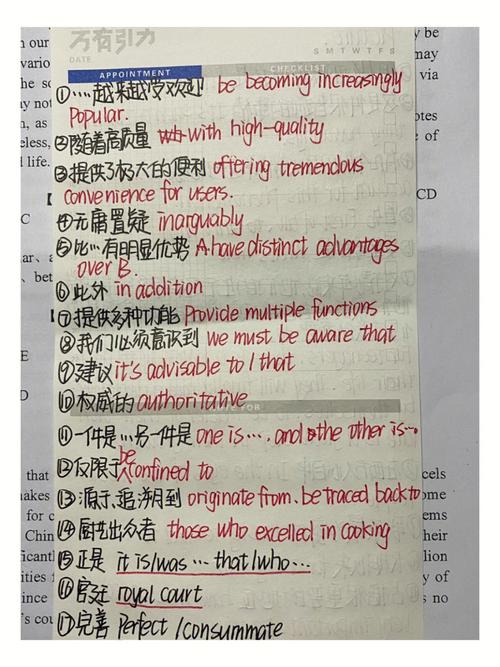 万有引力
DATE
S M T W T F S
APPOINTMENT
CHECKLIST
①…越来越受欢迎 be becoming increasingly
popular.
②随着高质量 with high-quality
③提供了极大的便利 offering tremendous
convenience for users.
④无庸置疑 inarguably
⑤比…有明显优势 A have distinct advantages
over B.
⑥此外 in addition
⑦提供多种功能 Provide multiple functions
⑧我们必须意识到 we must be aware that
⑨建议 it's advisable to / that
⑩权威的 authoritative
⑪一件是…另一件是 one is …, and the other is…
be
⑫仅限于 confined to
⑬源于、追溯到 originate from. be traced back to
⑭厨艺出众者 those who excelled in cooking
⑮正是 it is/was … that/who…
⑯宫廷 royal court
⑰完善 Perfect / consummate
n our
vario
the so
ay not
n, as
eless,
d life.
C
ar, a
, bet
E
D
that
akes
for c
Chin
ficantl
ities f
ince
's cou
y be
may
via
otes
e of
CD
cels
ome
ems
heir
lion
y of
s no